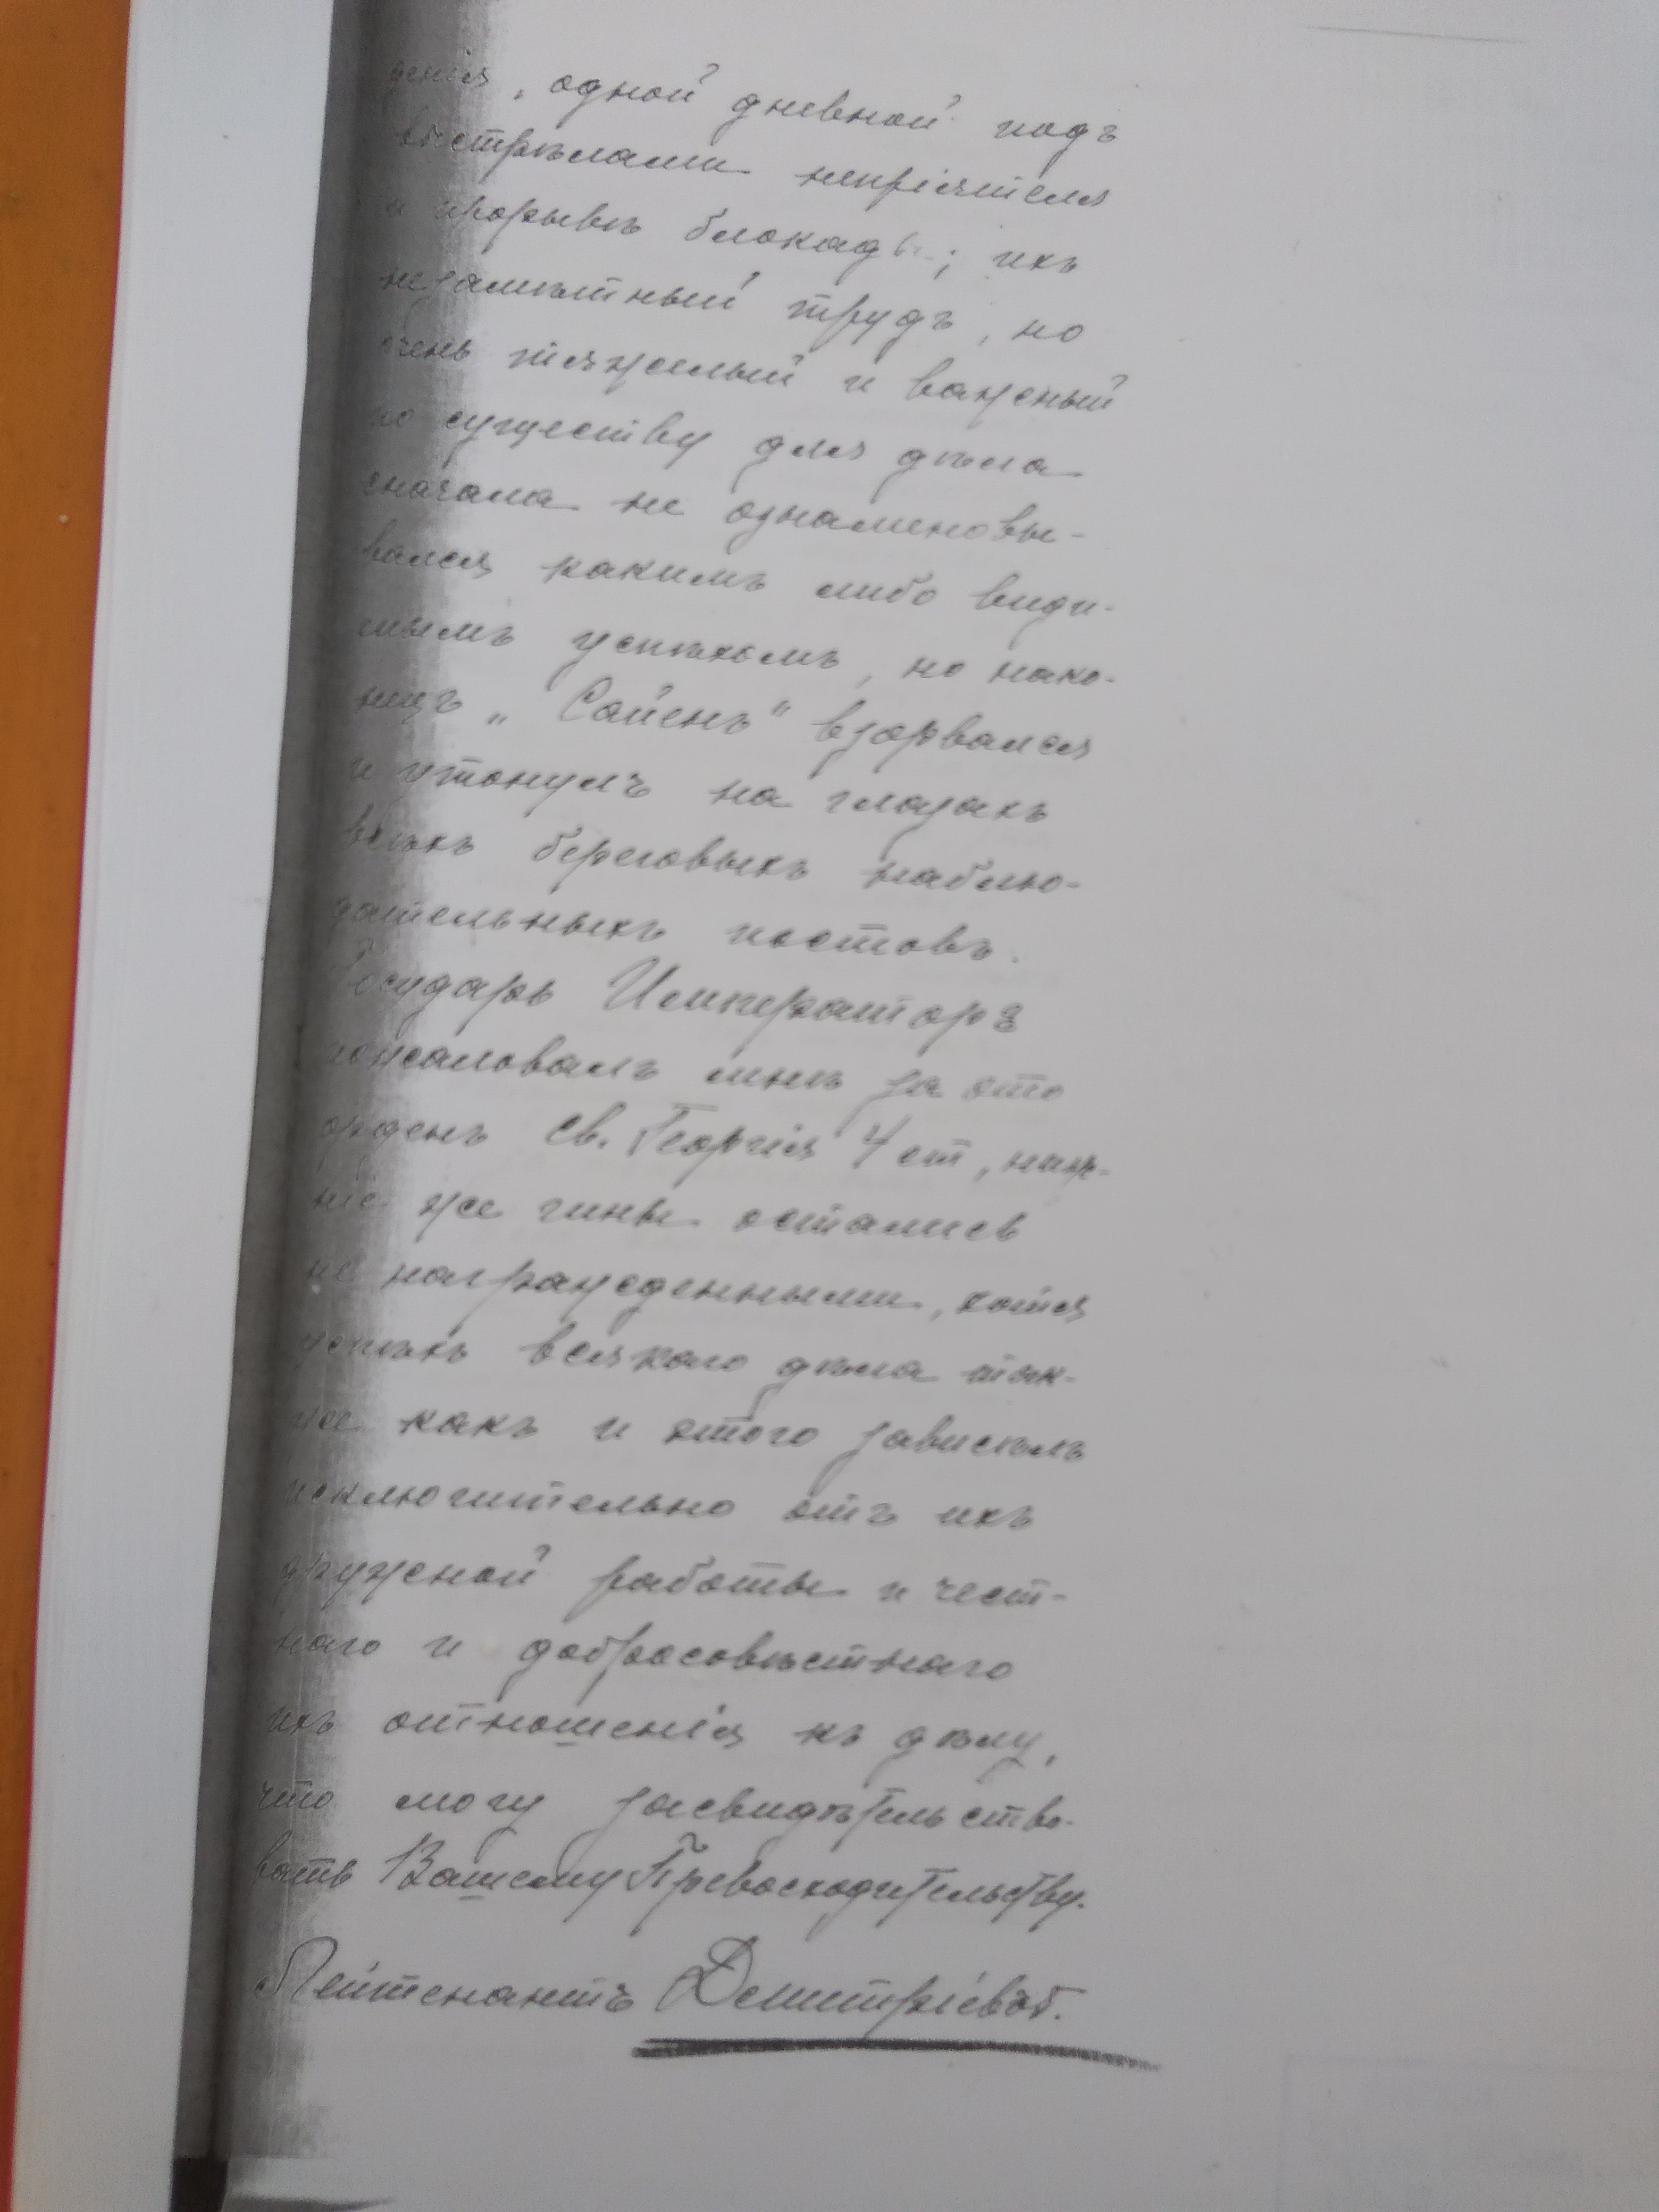 денія, одной дневной подъ
выстрѣлами непріятеля
и прорывѣ блокады; ихъ
незамѣтный трудъ, но
очень тяжелый и важный
по существу для дѣла
сначала не ознаменовы-
вался какимъ либо види-
мымъ успѣхомъ, но нако-
нецъ „Сайенъ" взорвался
и утонулъ на глазахъ
всѣхъ береговыхъ наблю-
дательныхъ постовъ.
Государь Императоръ
пожаловалъ мнѣ за это
орденъ Св. Георгія 4 ст, ниж-
ніе же чины остались
не награжденными, хотя
успѣхъ всякаго дѣла так-
же какъ и этого зависѣлъ
исключительно отъ ихъ
дружной работы и чест-
наго и добросовѣстнаго
ихъ отношенія къ дѣлу,
что могу засвидѣтельство-
вать Вашему Превосходительству.
Лейтенантъ Дмитріевъ.